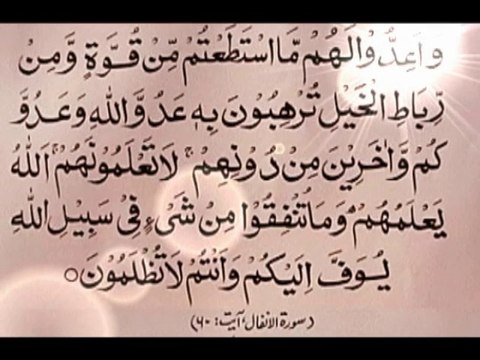 وَاَعِدُّوْا لَهُمْ مَّا اسْتَطَعْتُمْ مِّنْ قُوَّةٍ وَّمِنْ
رِّبَاطِ الْخَيْلِ تُرْهِبُوْنَ بِهٖ عَدُوَّ اللهِ وَعَدُوَّ
كُمْ وَاٰخَرِيْنَ مِنْ دُوْنِهِمْ ۚ لَا تَعْلَمُوْنَهُمْ ۚ اَللهُ
يَعْلَمُهُمْ ؕ وَمَا تُنْفِقُوْا مِنْ شَیْءٍ فِیْ سَبِيْلِ اللهِ
يُوَفَّ اِلَيْكُمْ وَاَنْتُمْ لَا تُظْلَمُوْنَ ○
(سورة الانفال، آیت: ۶۰)